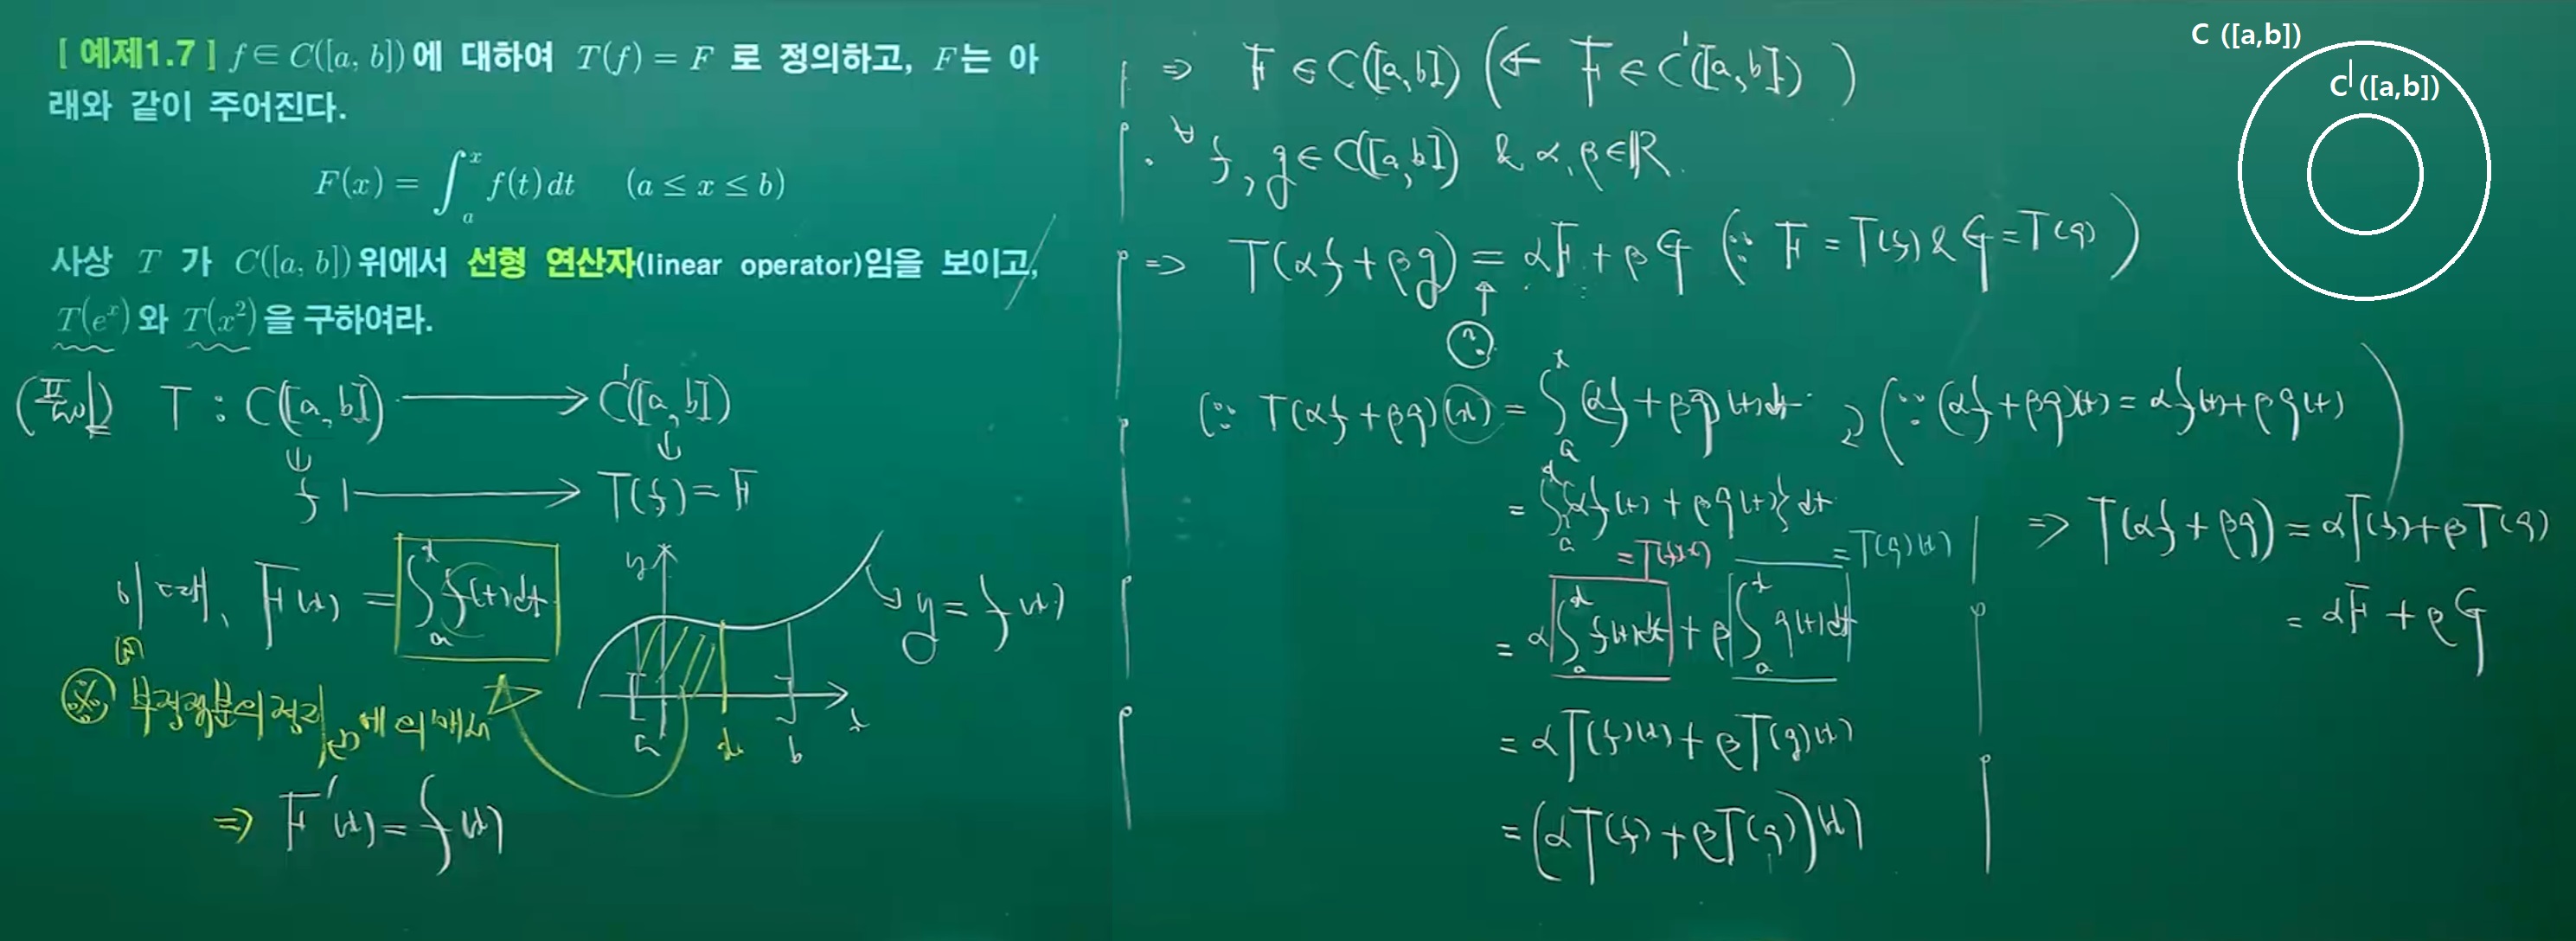 [ 예제1.7 ] f ∈ C([a, b])에 대하여 T(f) = F 로 정의하고, F는 아
래와 같이 주어진다.
F(x) = ∫_a^x f(t) dt (a ≤ x ≤ b)
사상 T 가 C([a, b])위에서 선형 연산자(linear operator)임을 보이고,
T(e^x)와 T(x^2)을 구하여라.
(풀이) T : C([a, b]) → C'([a, b])
f ↦ T(f) = F
이때, F(x) = ∫_a^x f(t)dt
y
y = f(x)
a x b x
※ 부정적분의 정리에 의해서
⇒ F'(x) = f(x)
⇒ F ∈ C([a, b]) (⇐ F ∈ C'([a, b]))
· ∀f, g ∈ C([a, b]) & α, β ∈ ℝ.
⇒ T(αf + βg) = αF + βG (∵ F = T(f) & G = T(g))
?
(∵ T(αf + βg)(x) = ∫_a^x (αf + βg)(t)dt (∵ (αf + βg)(t) = αf(t) + βg(t))
= ∫_a^x {αf(t) + βg(t)} dt
= T(f)(x) = T(g)(x)
= α ∫_a^x f(t)dt + β ∫_a^x g(t)dt
= αT(f)(x) + βT(g)(x)
= (αT(f) + βT(g))(x)
⇒ T(αf + βg) = αT(f) + βT(g)
= αF + βG
C ([a,b])
C' ([a,b])